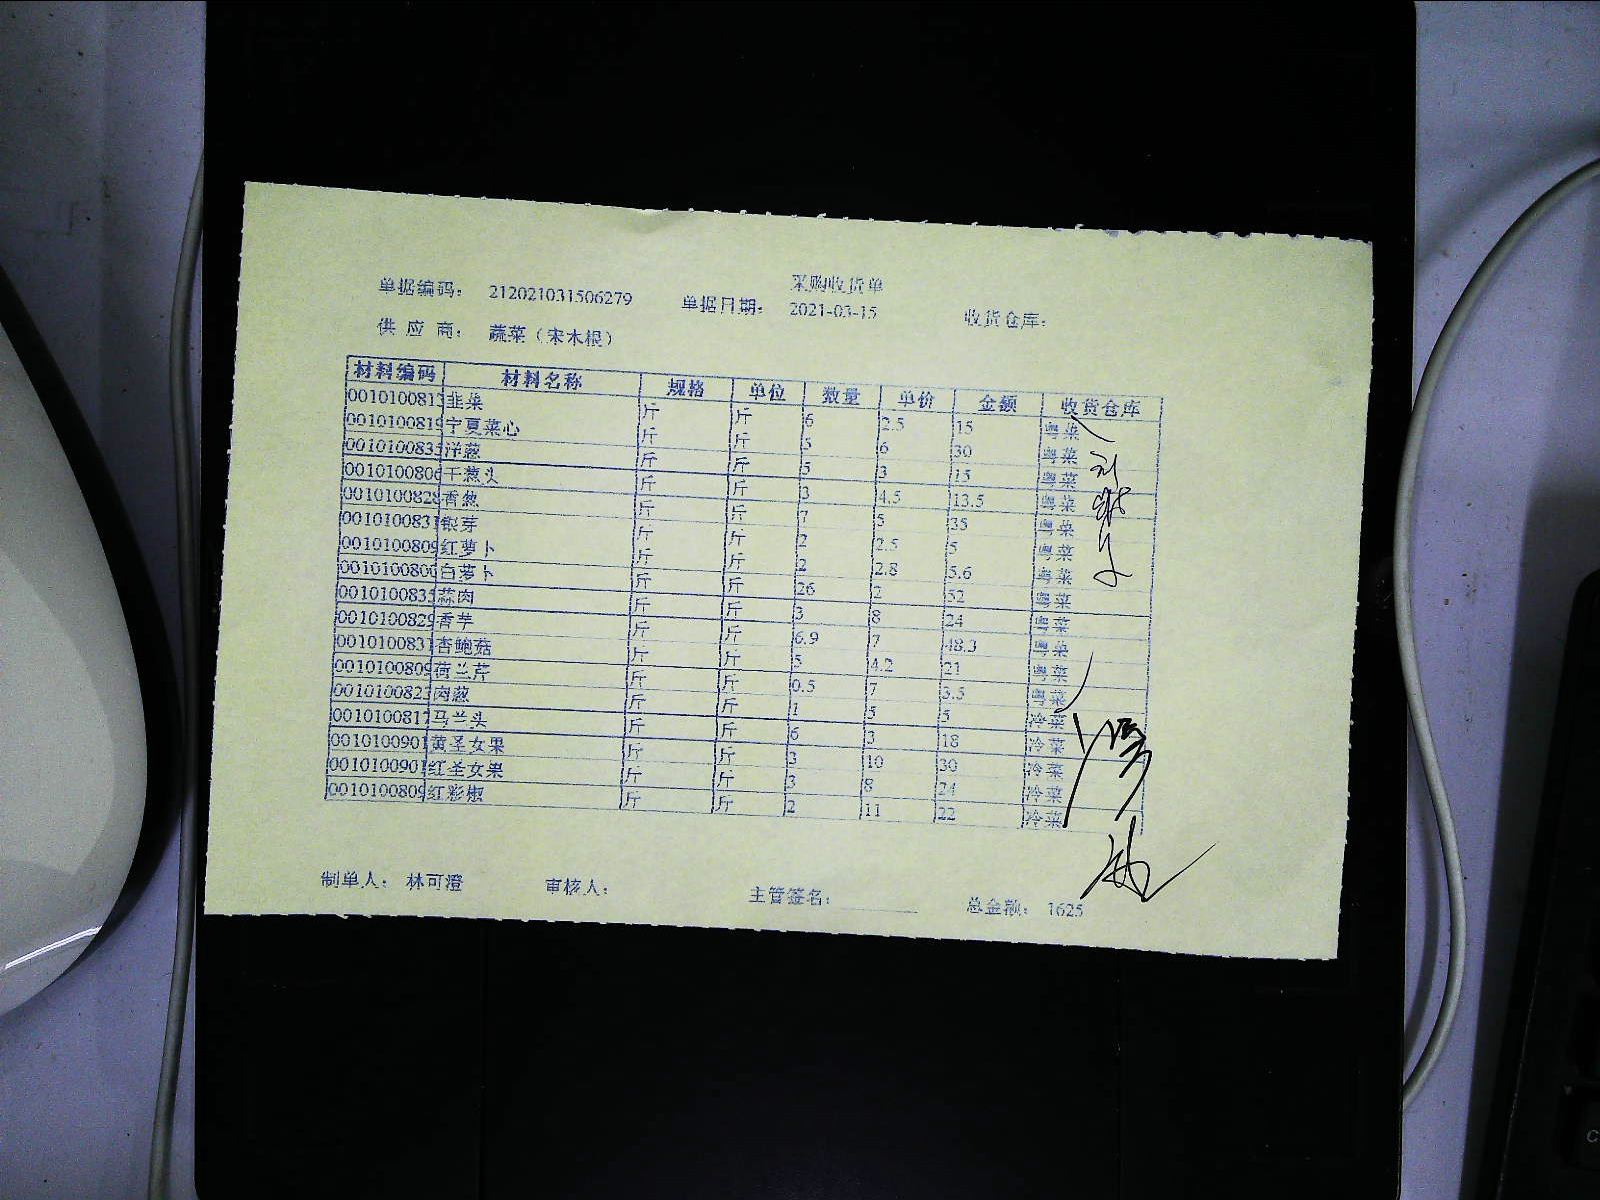 采购收货单
单据编码： 212021031506279 单据日期： 2021-03-15 收货仓库：
供 应 商： 蔬菜（宋木根）
材料编码 材料名称 规格 单位 数量 单价 金额 收货仓库
0010100813 韭菜 斤 斤 6 2.5 15 粤菜
0010100819 宁夏菜心 斤 斤 5 6 30 粤菜
0010100835 洋葱 斤 斤 5 3 15 粤菜
0010100806 干葱头 斤 斤 3 4.5 13.5 粤菜
0010100828 香葱 斤 斤 7 5 35 粤菜
0010100831 银芽 斤 斤 2 2.5 5 粤菜
0010100809 红萝卜 斤 斤 2 2.8 5.6 粤菜
0010100800 白萝卜 斤 斤 26 2 52 粤菜
0010100835 蒜肉 斤 斤 3 8 24 粤菜
0010100829 香芋 斤 斤 6.9 7 48.3 粤菜
0010100831 杏鲍菇 斤 斤 5 4.2 21 粤菜
0010100809 荷兰芹 斤 斤 0.5 7 3.5 粤菜
0010100823 肉葱 斤 斤 1 5 5 冷菜
0010100817 马兰头 斤 斤 6 3 18 冷菜
0010100901 黄圣女果 斤 斤 3 10 30 冷菜
0010100901 红圣女果 斤 斤 3 8 24 冷菜
0010100809 红彩椒 斤 斤 2 11 22 冷菜
制单人： 林可澄 审核人： 主管签名： 总金额： 1625